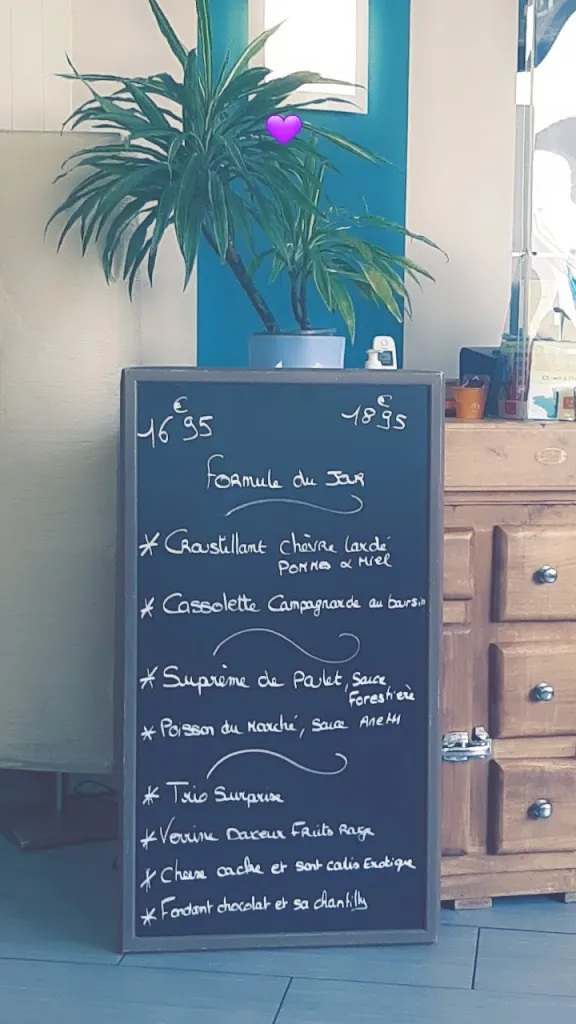 16€95 18€95
Formule du Jour
* Croustillant chèvre lardé
Pommes & Miel
* Cassolette Campagnarde au boursin
* Suprème de Poulet, Sauce
Forestière
* Poisson du Marché, Sauce Aneth
* Trio Surprise
* Verrine Douceur Fruits Rouge
* Cheese cacke et son coulis Exotique
* Fondant chocolat et sa chantilly